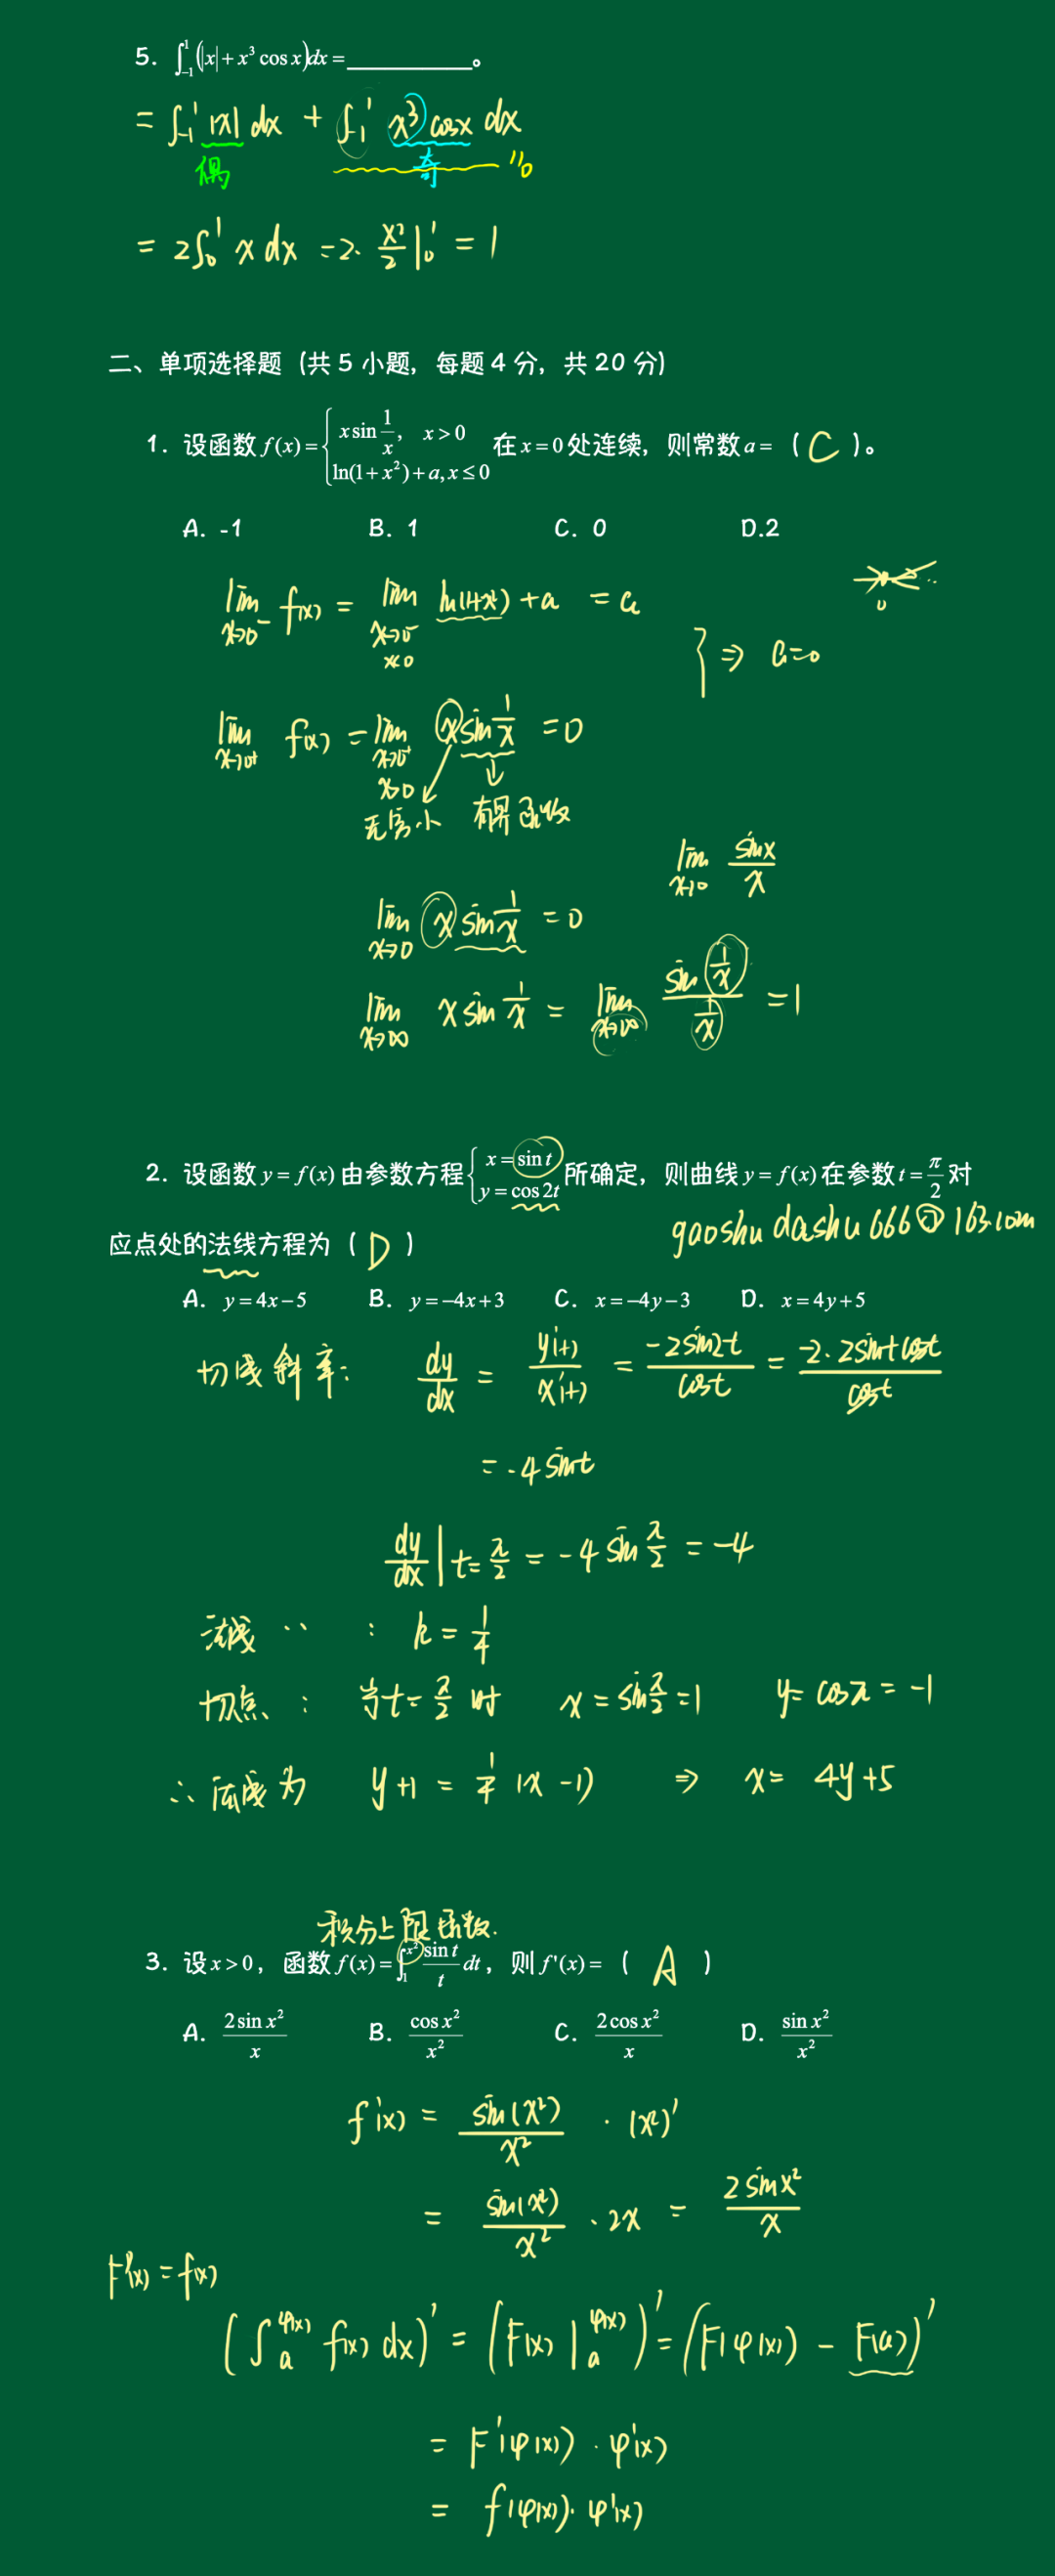 5. ∫₋₁¹(|x|+x³cos x)dx=__________。
= ∫₋₁¹ |x| dx + ∫₋₁¹ x³ cosx dx
偶 奇 "0
= 2∫₀¹ x dx = 2· x²/2 |₀¹ = 1
二、单项选择题（共 5 小题，每题 4 分，共 20 分）
1. 设函数 f(x)={ x sin 1/x, x>0
ln(1+x²)+a, x≤0 在 x=0 处连续，则常数 a=（ C ）。
A. -1 B. 1 C. 0 D.2
lim x→0⁻ f(x) = lim x→0⁻ x<0 ln(1+x²) + a = a
0
} ⇒ a=0
lim x→0⁺ f(x) = lim x→0⁺ x>0 x sin 1/x = 0
无穷小 有界函数
lim x→0 sinx/x
lim x→0 x sin 1/x = 0
lim x→∞ x sin 1/x = lim x→∞ sin 1/x / 1/x = 1
2. 设函数 y=f(x) 由参数方程 { x=sin t
y=cos 2t 所确定，则曲线 y=f(x) 在参数 t=π/2 对
gaoshudashu666@163.com
应点处的法线方程为（ D ）
A. y=4x−5 B. y=−4x+3 C. x=−4y−3 D. x=4y+5
切线斜率: dy/dx = y'(t)/x'(t) = -2sin2t/cost = -2·2sint cost/cost
= -4 sint
dy/dx | t=π/2 = -4 sin π/2 = -4
法线 ‥ : k = 1/4
切点 : 当 t=π/2 时 x = sin π/2 = 1 y = cosπ = -1
∴ 法线为 y+1 = 1/4 (x-1) ⇒ x = 4y+5
积分上限函数.
3. 设 x>0，函数 f(x)=∫₁^(x²) sin t/t dt，则 f'(x)=（ A ）
A. 2sin x²/x B. cos x²/x² C. 2cos x²/x D. sin x²/x²
f'(x) = sin(x²)/x² · (x²)'
= sin(x²)/x² · 2x = 2sinx²/x
F'(x) = f(x)
(∫ₐ^φ(x) f(x) dx)' = (F(x)|ₐ^φ(x))' = (F(φ(x)) - F(a))'
= F'(φ(x)) · φ'(x)
= f(φ(x)) · φ'(x)